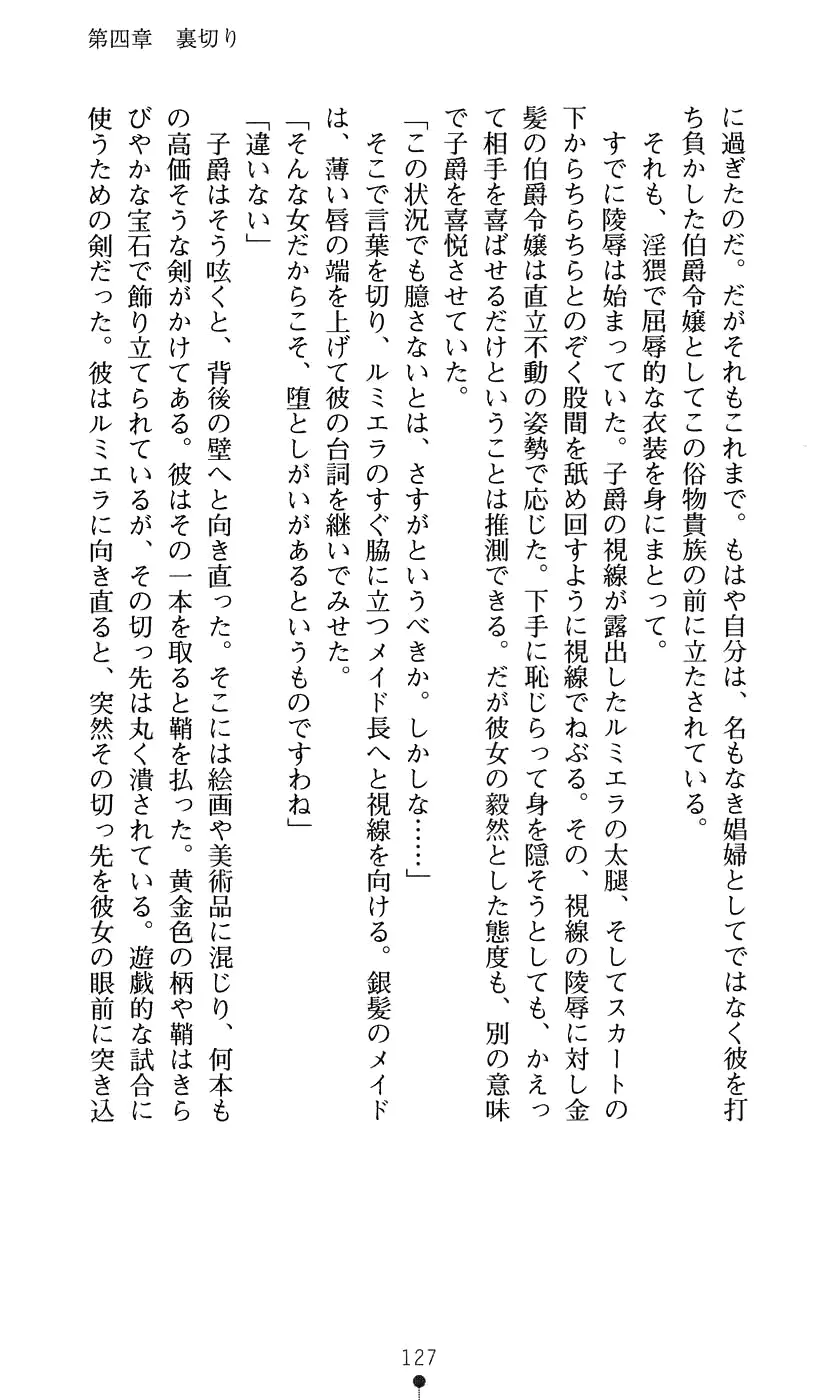 第四章　裏切り
に過ぎたのだ。だがそれもこれまで。もはや自分は、名もなき娼婦としてではなく彼を打
ち負かした伯爵令嬢としてこの俗物貴族の前に立たされている。
それも、淫猥で屈辱的な衣装を身にまとって。
すでに陵辱は始まっていた。子爵の視線が露出したルミエラの太腿、そしてスカートの
下からちらちらとのぞく股間を舐め回すように視線でねぶる。その、視線の陵辱に対し金
髪の伯爵令嬢は直立不動の姿勢で応じた。下手に恥じらって身を隠そうとしても、かえっ
て相手を喜ばせるだけということは推測できる。だが彼女の毅然とした態度も、別の意味
で子爵を喜悦させていた。
「この状況でも臆さないとは、さすがというべきか。しかしな……」
そこで言葉を切り、ルミエラのすぐ脇に立つメイド長へと視線を向ける。銀髪のメイド
は、薄い唇の端を上げて彼の台詞を継いでみせた。
「そんな女だからこそ、堕としがいがあるというものですわね」
「違いない」
子爵はそう呟くと、背後の壁へと向き直った。そこには絵画や美術品に混じり、何本も
の高価そうな剣がかけてある。彼はその一本を取ると鞘を払った。黄金色の柄や鞘はきら
びやかな宝石で飾り立てられているが、その切っ先は丸く潰されている。遊戯的な試合に
使うための剣だった。彼はルミエラに向き直ると、突然その切っ先を彼女の眼前に突き込
127